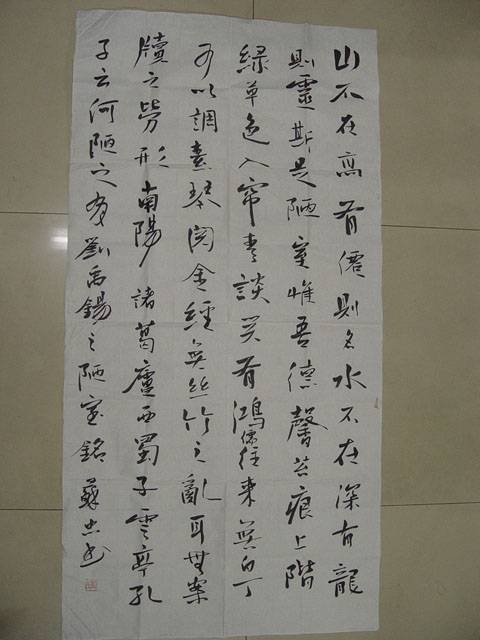 山不在高有僊則名水不在深有龍
則靈斯是陋室惟吾德馨苔痕上階
綠草色入帘青談笑有鴻儒往來無白丁
可以調素琴閱金經無絲竹之亂耳無案
牘之勞形南陽諸葛廬西蜀子雲亭孔
子云何陋之有劉禹錫之陋室銘蘇忠書